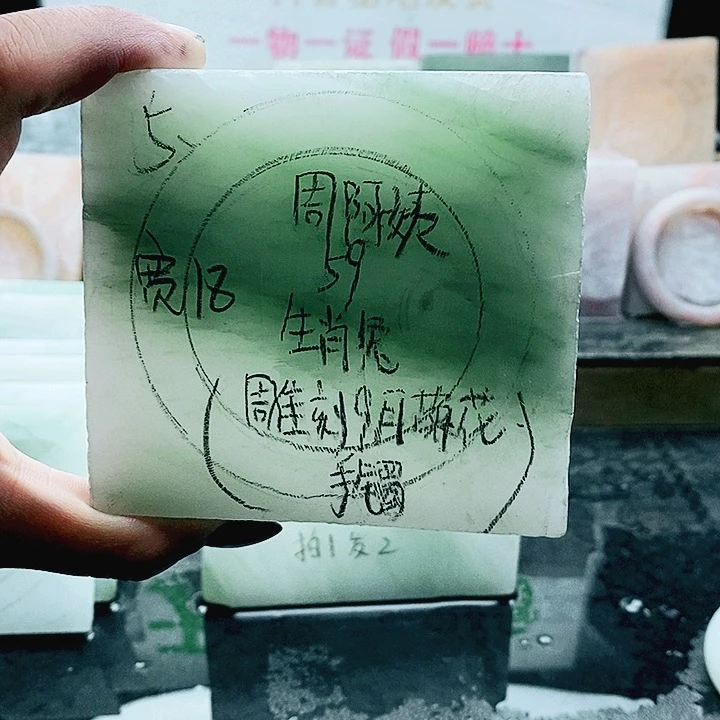 一物一证 假一赔十
5、
周阿姨
59
宽18
生肖兔
(雕刻9月菊花)
手镯
拍1发2